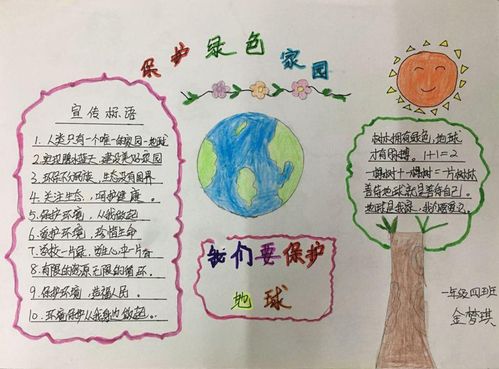 保护绿色家园
宣传标语
1. 人类只有一个唯一的家园-地球
2. 建设美好家园
3. 环保不分民族，生态没有国界
4. 关注生态，呵护健康。
5. 保护环境，从我做起
6. 爱护环境，珍惜生命
8. 有限的资源 无限的循环。
9. 保护环境，造福人民。
10. 环境保护从我身边做起。
我们要保护
地球
树木拥有绿色，地球
才有脉搏。1+1=2
一棵树+一棵树=一片树林
善待地球就是善待自己。
地球是我家，
一年级四班
金梦琪